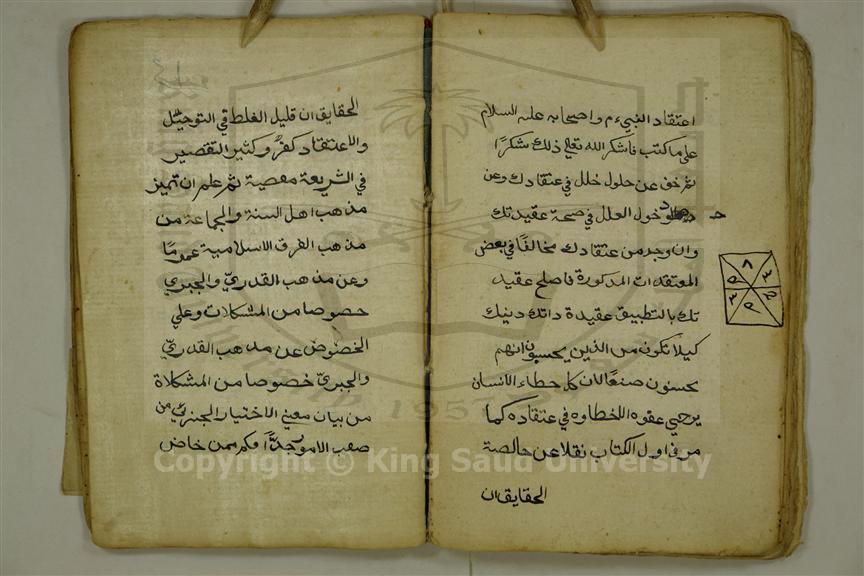 اعتقاد النبيء م واصحابه عليه السلام
على ما كتب فاشكر الله تعالى ذلك شكرًا
ثم خف عن حلول خلل في عتقادك وعن
دخول العلل في صحة عقيدتك
وان وجد من عتقادك مخالفًا في بعض
المعتقدات المذكورة فاصلح عقيد
تك بالتطبيق عقيدة ذاتك دينك
كيلا تكون من الذين يحسبون انهم
يحسنون صنعًا لان كل حطاء الانسان
يرجى عفوه الا خطاوه في عتقاده كما
مر في اول الكتاب نقلا عن خالصة
الحقايق ان
٨
٣
٥
٢
٩
٣
الحقايق ان قليل الغلط في التوحيد
والاعتقاد كفرٌ وكثير التقصير
في الشريعة معصية ثم علم ان تميز
مذهب اهل السنة والجماعة من
مذهب الفرق الاسلامية عمومًا
وعن مذهب القدريّ والجبري
خصوصا من المشكلات وعلي
الخصوص عن مذهب القدريّ
والجبريّ خصوصا من المشكلاة
من بيان معني الاختيار الجزئي من
صعب الامور جدًّا وكم ممن خاض
Copyright © King Saud University
1957